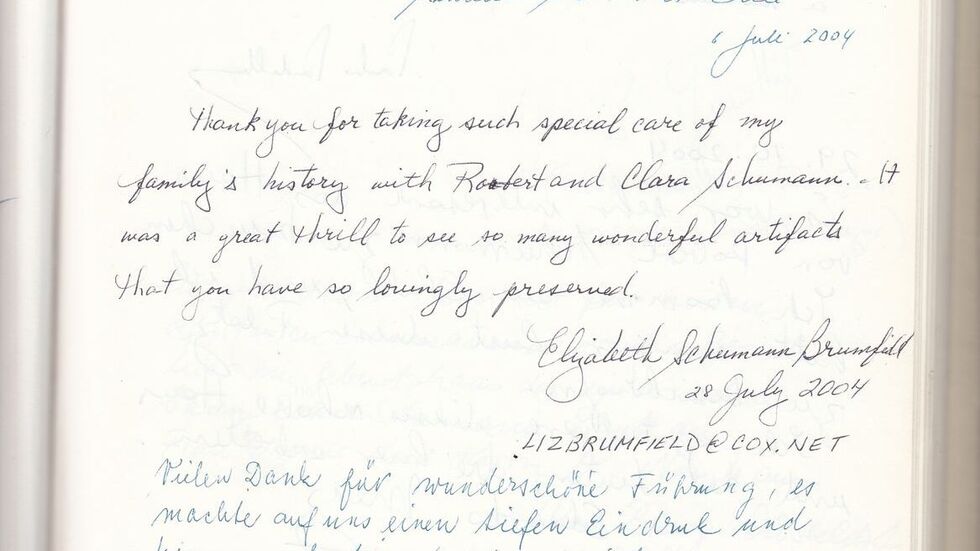 6 Juli 2004
Thank you for taking such special care of my
family's history with Robert and Clara Schumann. It
was a great thrill to see so many wonderful artifacts
that you have so lovingly preserved.
Elizabeth Schumann Brumfield
28 July 2004
LIZBRUMFIELD@COX.NET
Vielen Dank für wunderschöne Führung, es
machte auf uns einen tiefen Eindruk und